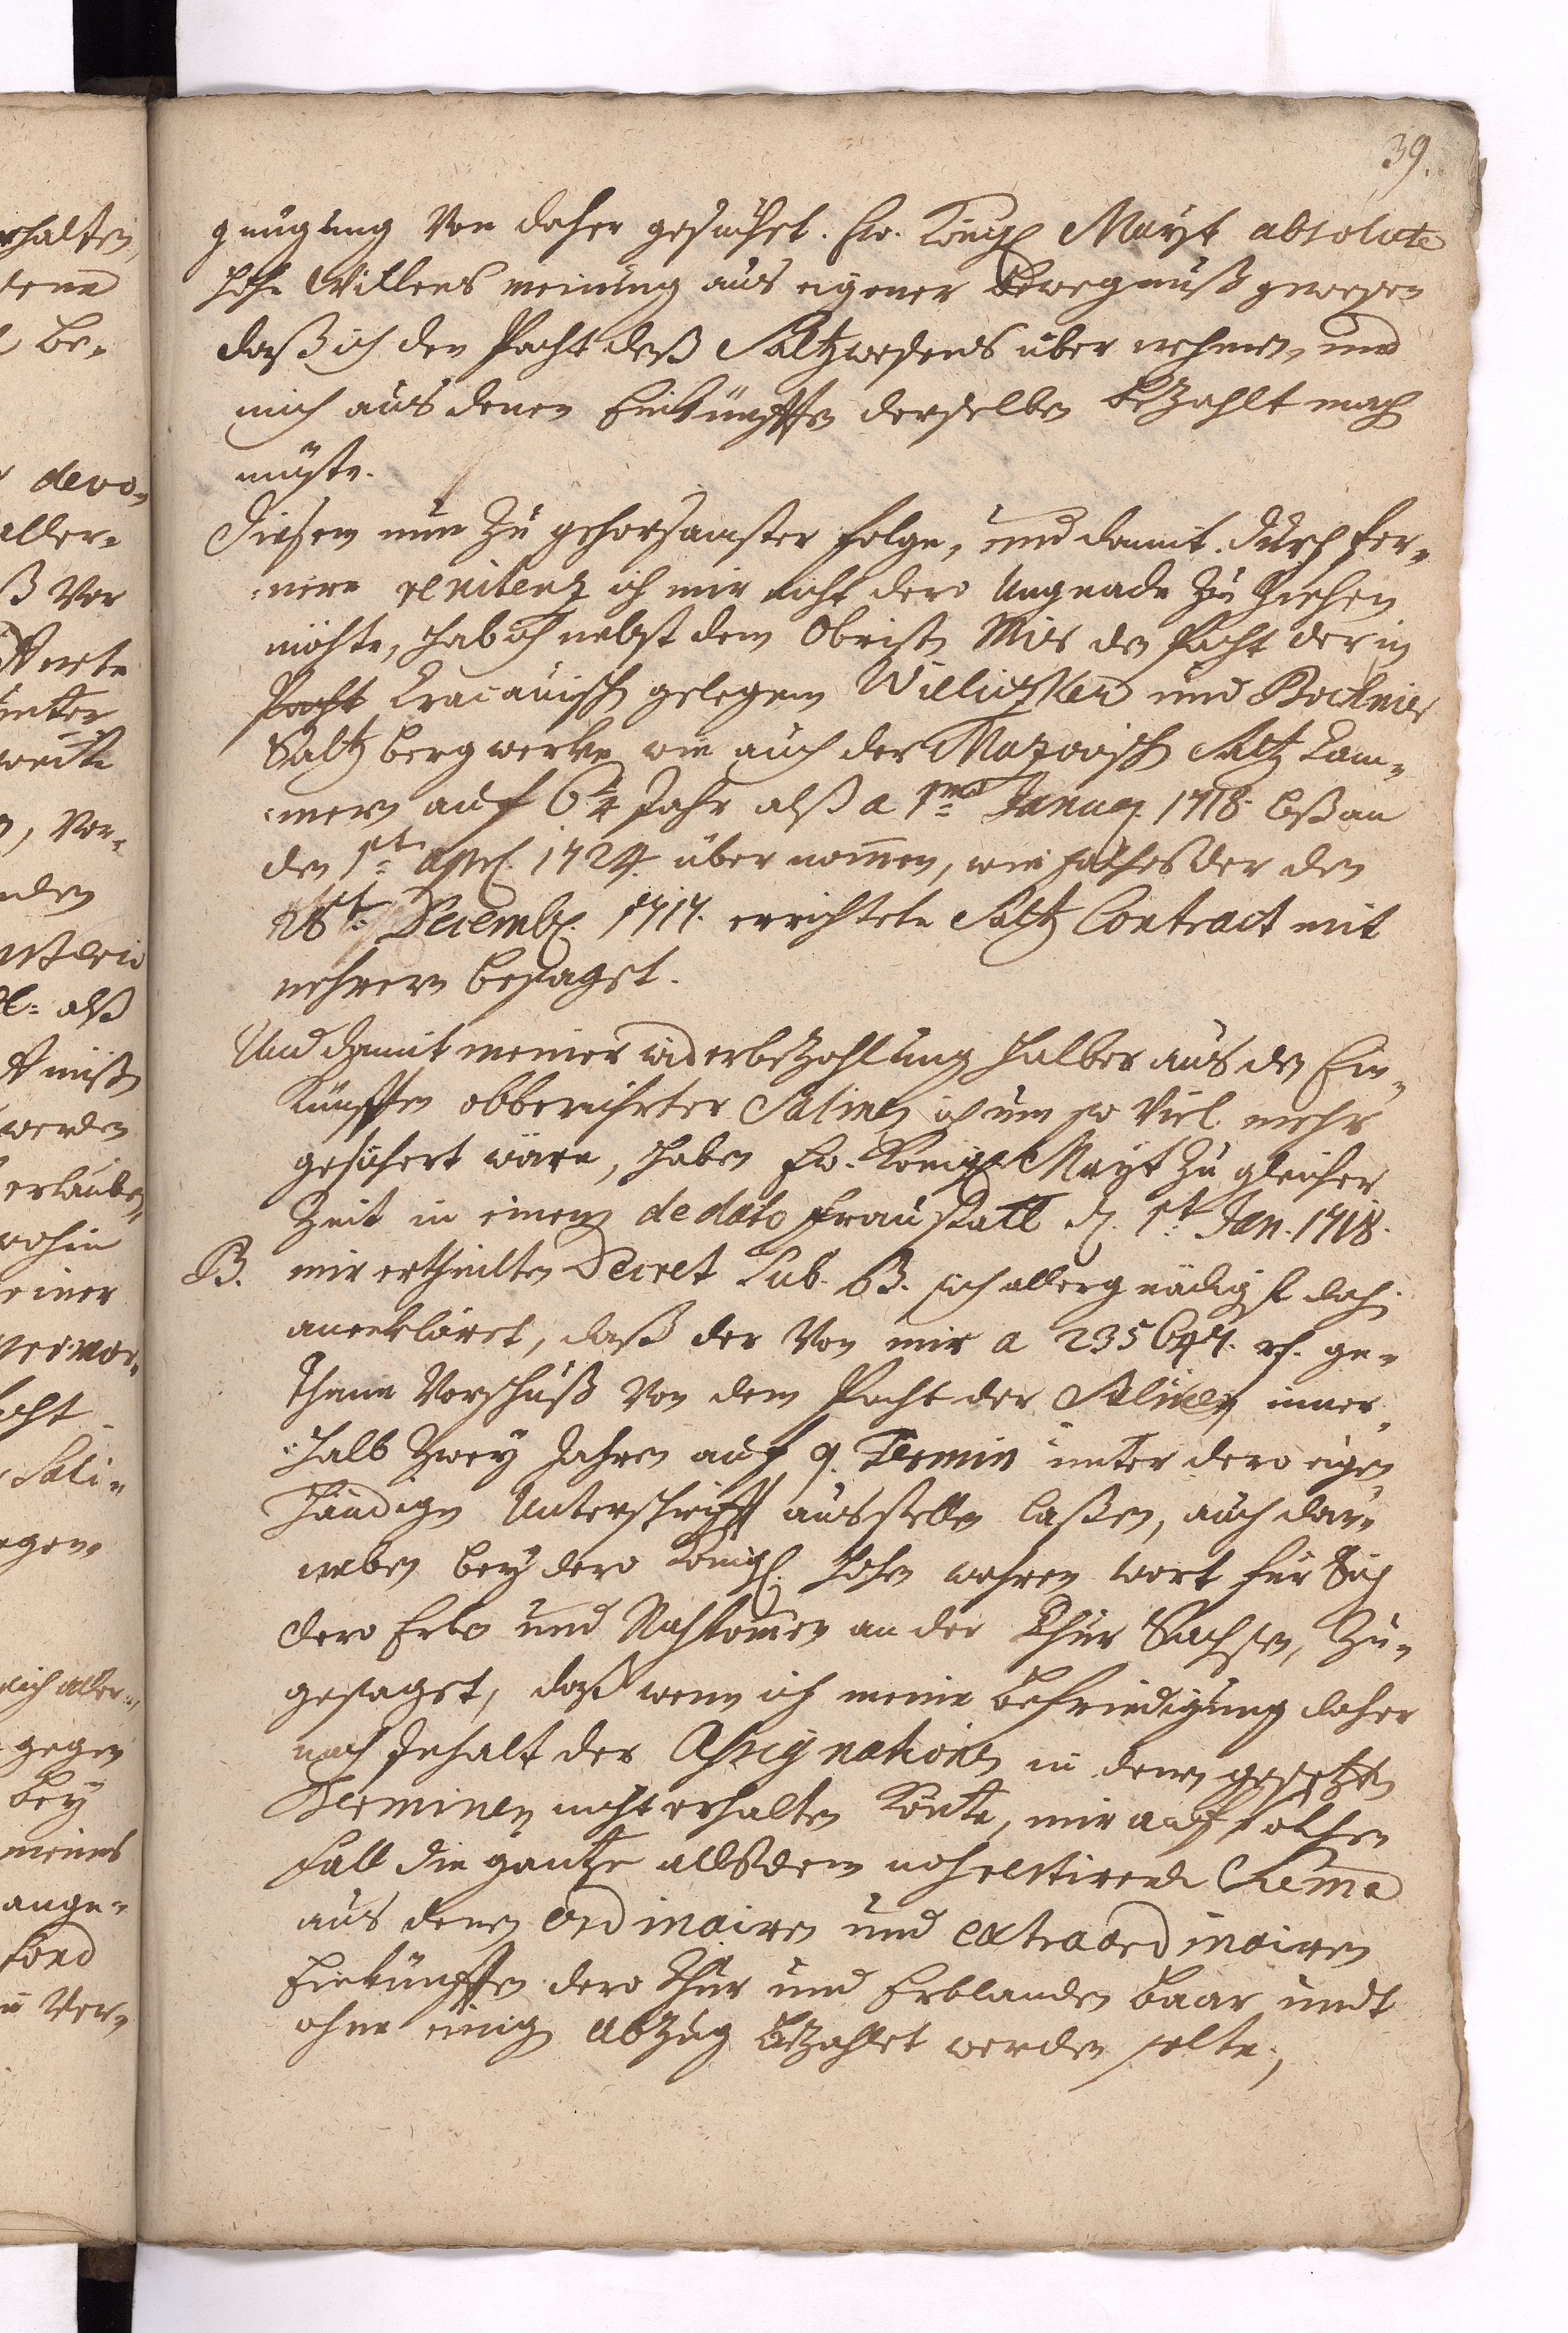 39.
gnügung von daher gesuchet. Ew. Königl Mayt absolute
hohe Willens meinung aus eigener Bewegnuß gewesen
daß ich den Pacht deß Saltzwesens über nehmen, und
mich aus denen Einkünfften derselben bezahlt mach
müste.
Diesem nun zu gehorsamster folge, und damit durch fer-
nere renitenz ich mir nicht dero Ungnade zu ziehen
möchte, hab ich nebst dem Obristen Mier den Pacht der in
Pacht Cracauisch gelegenen Willitzker und Bochnier
Saltz bergwerke wie auch der Mazovisch Saltz Cam-
:mern auf 6¼ Jahr alß a 1mo Januar. 1718. biß an
den 1t. April. 1724. über nommen, wie solches der den
28t. Decembr. 1717. errichtete Saltz Contract mit
mehrern besaget.
Und damit meiner widerbezahlung halber aus den Ein-
künfften obberührter Salinen ich um so viel mehr
gesichert wäre, haben Ew. Königl Mayt zu gleicher
Zeit in einem de dato Fraustatt d. 1t. Jan. 1718.
B. mir ertheilten Decret Sub. B. sich allergnädigst dah.
anerkläret, daß der von mir a 235647. rh. ge-
thane Vorschuß von dem Pacht der Salinen inner-
:halb zwey Jahren auf 9. Termin unter dero eigen
händigen Unterschrifft ausstellen laßen, auch dar-
neben bey dero Königl. hohen wahren wort für Sich
dero Erben und Nachkommen an der Chur Sachsen, zu-
gesaget, daß wenn ich meine Befriedigung daher
nach Inhalt der Assignationen in denen gesetzten
Terminen nicht erhalten könte, mir auf solchen
fall die gantze allsdenn noch restirende Summa
aus denen ordinairen und extraordinairen
Einkünfften dero Chur und Erblanden baar undt
ohne einig Abzug bezahlet werden solte,